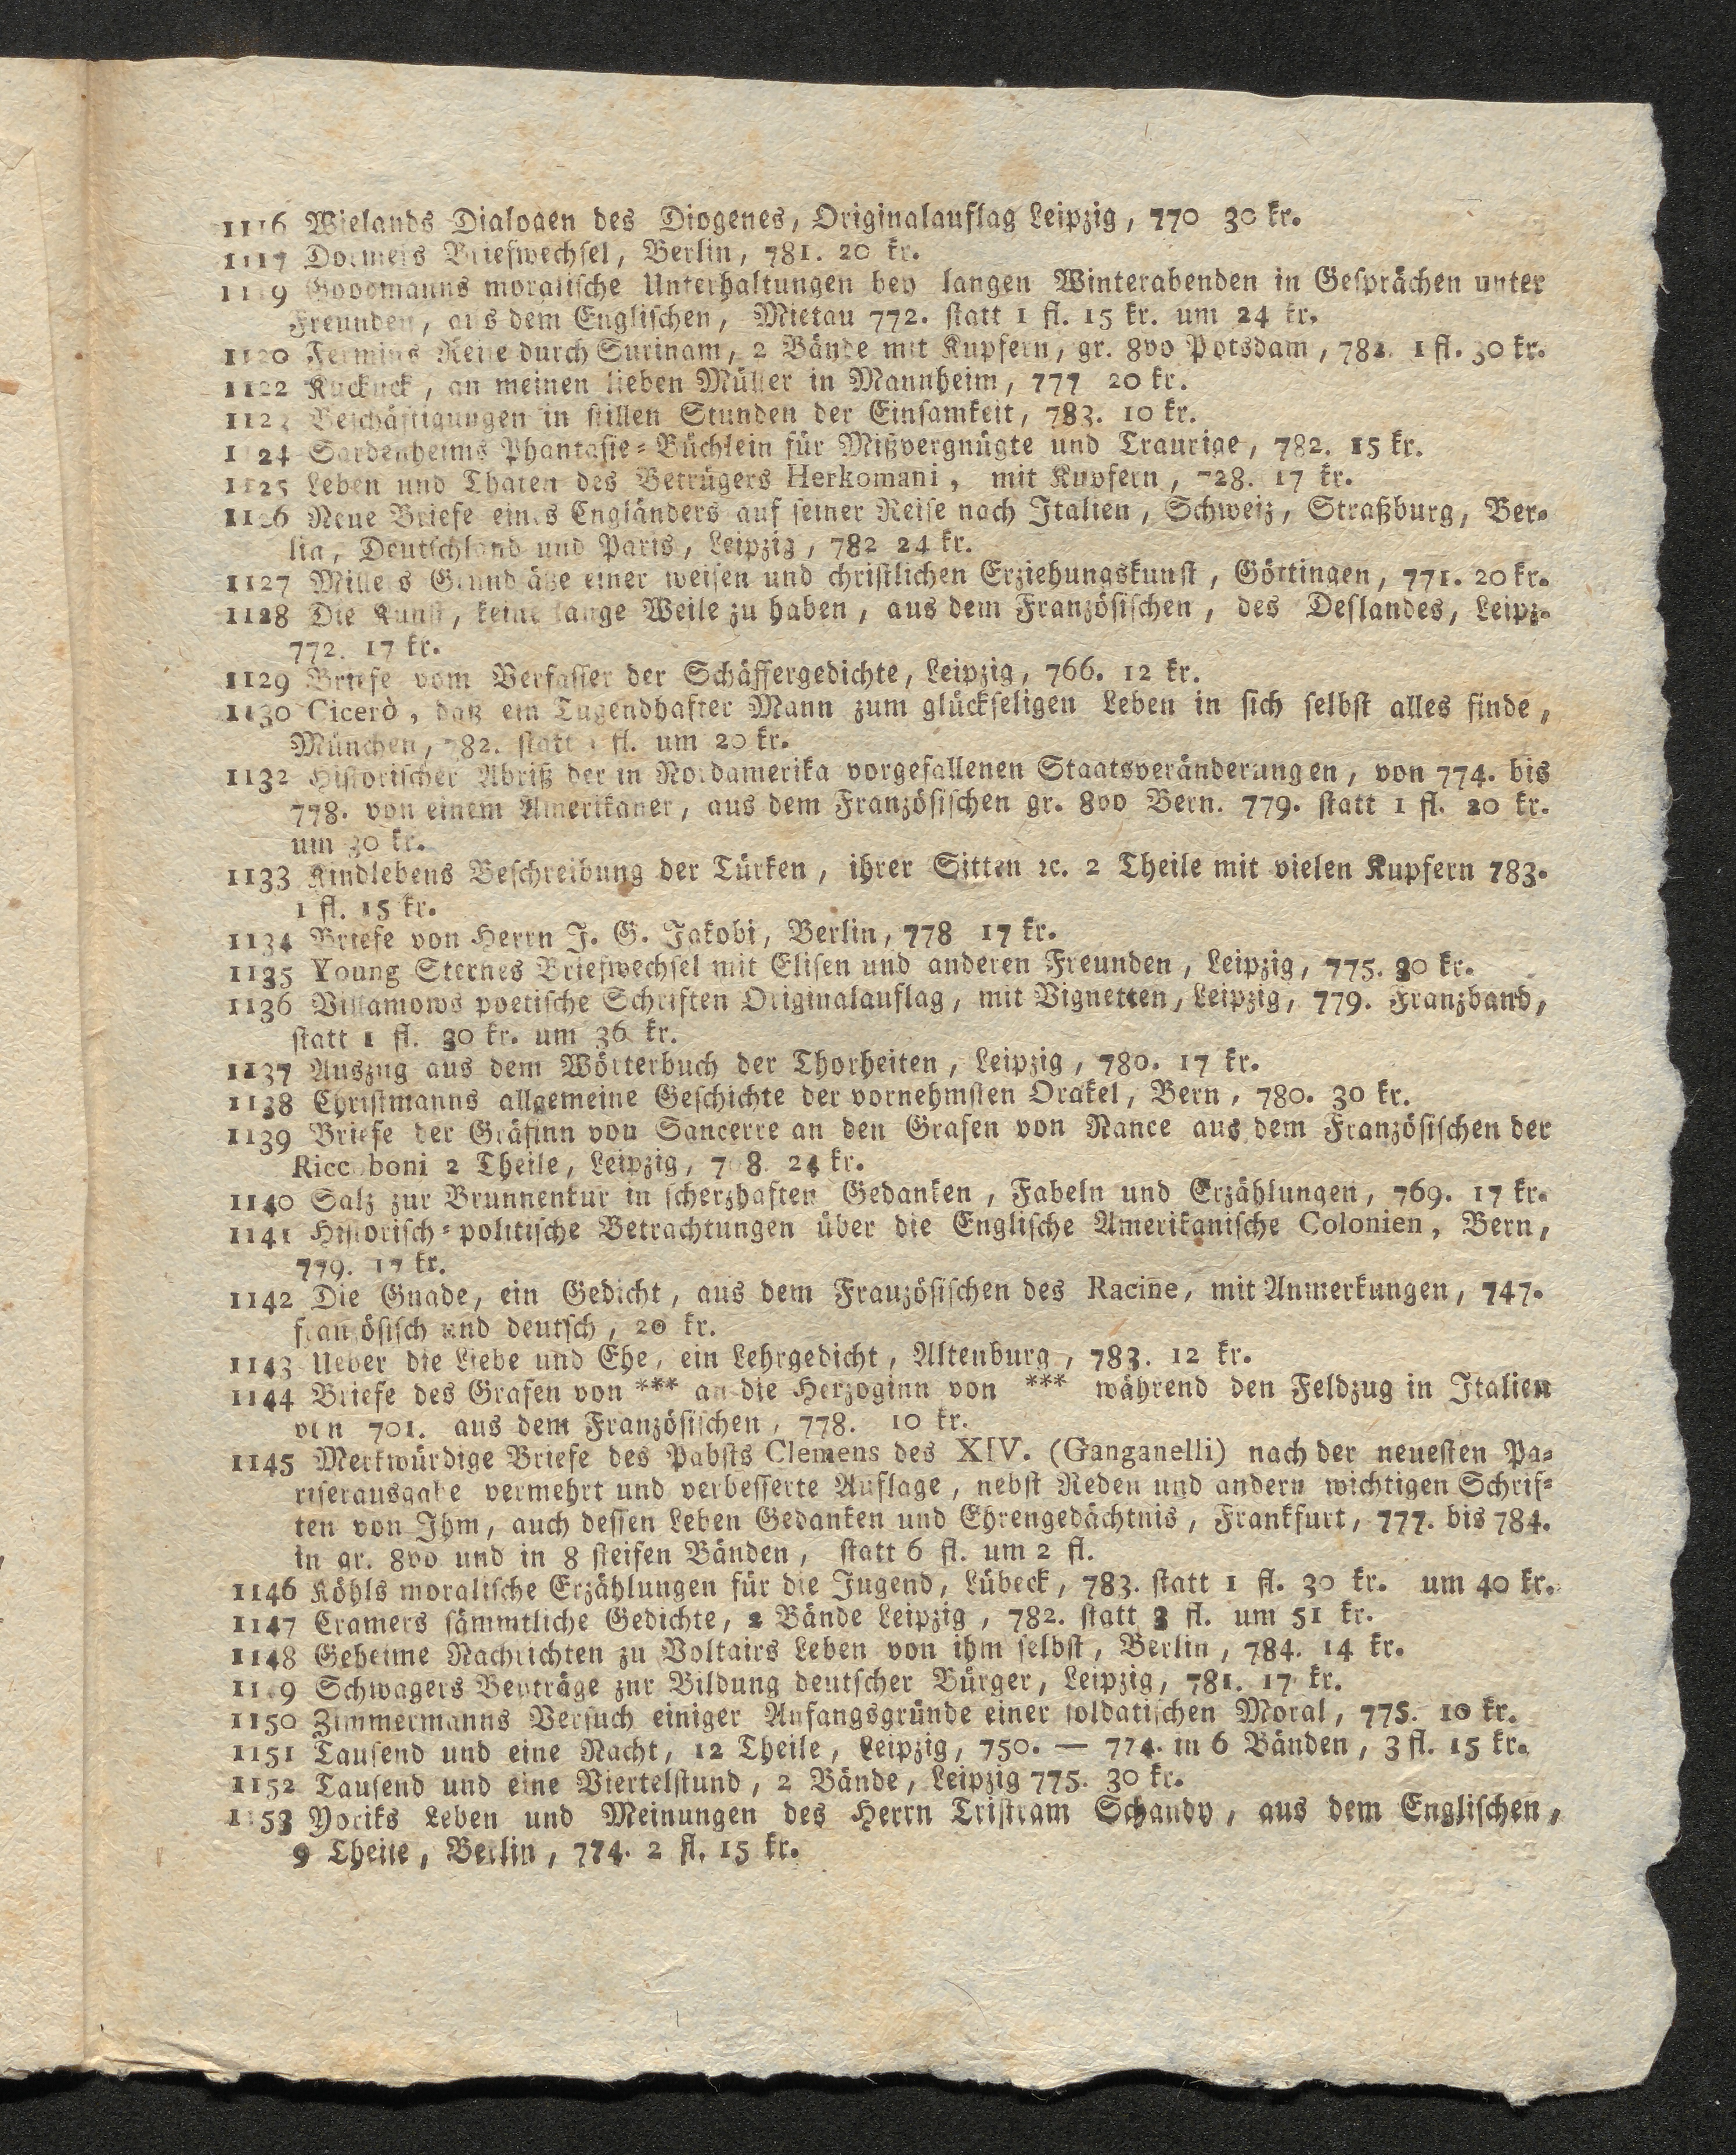 1116 Wielands Dialogen des Diogenes, Originalauflag Leipzig, 770 30 kr.
1117 Briefwechsel, Berlin, 781. 20 kr.
1119 moralische Unterhaltungen bey langen Winterabenden in Gesprächen unter
Freunden, aus dem Englischen, Mietau 772. statt 1 fl. 15 kr. um 24 kr.
1120 Fermins Reise durch Surinam, 2 Bände mit Kupfern, gr. 8vo Potsdam, 782. 1 fl. 30 kr.
1122 Kuckuck, an meinen lieben Müller in Mannheim, 777 20 kr.
1123 Beschäftigungen in stillen Stunden der Einsamkeit, 783. 10 kr.
1124 Sardenheims Phantasie-Büchlein für Mißvergnügte und Traurige, 782. 15 kr.
1125 Leben und Thaten des Betrügers Herkomani, mit Kupfern, 728. 17 kr.
1126 Neue Briefe eines Engländers auf seiner Reise nach Italien, Schweiz, Straßburg, Ber-
lin, Deutschland und Paris, Leipzig, 782 24 kr.
1127 Millers Grundsätze einer weisen und christlichen Erziehungskunst, Göttingen, 771. 20 kr.
1128 Die Kunst, keine lange Weile zu haben, aus dem Französischen, des Deslandes, Leipz.
772. 17 kr.
1129 Briefe vom Verfasser der Schäffergedichte, Leipzig, 766. 12 kr.
1130 Cicero, daß ein Tugendhafter Mann zum glückseligen Leben in sich selbst alles finde,
München, 782. statt 1 fl. um 20 kr.
1132 Historischer Abriß der in Nordamerika vorgefallenen Staatsveränderungen, von 774. bis
778. von einem Amerikaner, aus dem Französischen gr. 8vo Bern. 779. statt 1 fl. 20 kr.
um 30 kr.
1133 Kindlebens Beschreibung der Türken, ihrer Sitten ꝛc. 2 Theile mit vielen Kupfern 783.
1 fl. 15 kr.
1134 Briefe von Herrn J. G. Jakobi, Berlin, 778 17 kr.
1135 Young Sternes Briefwechsel mit Elisen und anderen Freunden, Leipzig, 775. 30 kr.
1136 Villamows poetische Schriften Originalauflag, mit Vignetten, Leipzig, 779. Franzband,
statt 1 fl. 30 kr. um 36 kr.
1137 Auszug aus dem Wörterbuch der Thorheiten, Leipzig, 780. 17 kr.
1138 Christmanns allgemeine Geschichte der vornehmsten Orakel, Bern, 780. 30 kr.
1139 Briefe der Gräfinn von Sancerre an den Grafen von Nance aus dem Französischen der
Riccoboni 2 Theile, Leipzig, 24 kr.
1140 Salz zur Brunnenkur in scherzhaften Gedanken, Fabeln und Erzählungen, 769. 17 kr.
1141 Historisch-politische Betrachtungen über die Englische Amerikanische Colonien, Bern,
779. 17 kr.
1142 Die Gnade, ein Gedicht, aus dem Französischen des Racine, mit Anmerkungen, 747.
französisch und deutsch, 20 kr.
1143 Ueber die Liebe und Ehe, ein Lehrgedicht, Altenburg, 783. 12 kr.
1144 Briefe des Grafen von *** an die Herzoginn von *** während den Feldzug in Italien
von 701. aus dem Französischen, 778. 10 kr.
1145 Merkwürdige Briefe des Pabsts Clemens des XIV. (Ganganelli) nach der neuesten Pa-
riserausgabe vermehrt und verbesserte Auflage, nebst Reden und andern wichtigen Schrif-
ten von Ihm, auch dessen Leben Gedanken und Ehrengedächtnis, Frankfurt, 777. bis 784.
in gr. 8vo und in 8 steifen Bänden, statt 6 fl. um 2 fl.
1146 Köhls moralische Erzählungen für die Jugend, Lübeck, 783. statt 1 fl. 30 kr. um 40 kr.
1147 Cramers sämmtliche Gedichte, 2 Bände Leipzig, 782. statt 3 fl. um 51 kr.
1148 Geheime Nachrichten zu Voltairs Leben von ihm selbst, Berlin, 784. 14 kr.
1149 Schwagers Beyträge zur Bildung deutscher Bürger, Leipzig, 781. 17 kr.
1150 Zimmermanns Versuch einiger Anfangsgründe einer soldatischen Moral, 775. 10 kr.
1151 Tausend und eine Nacht, 12 Theile, Leipzig, 750. — 774. in 6 Bänden, 3 fl. 15 kr.
1152 Tausend und eine Viertelstund, 2 Bände, Leipzig 775. 30 kr.
1153 Yoriks Leben und Meinungen des Herrn Tristram Schandy, aus dem Englischen,
9 Theile, Berlin, 774. 2 fl. 15 kr.